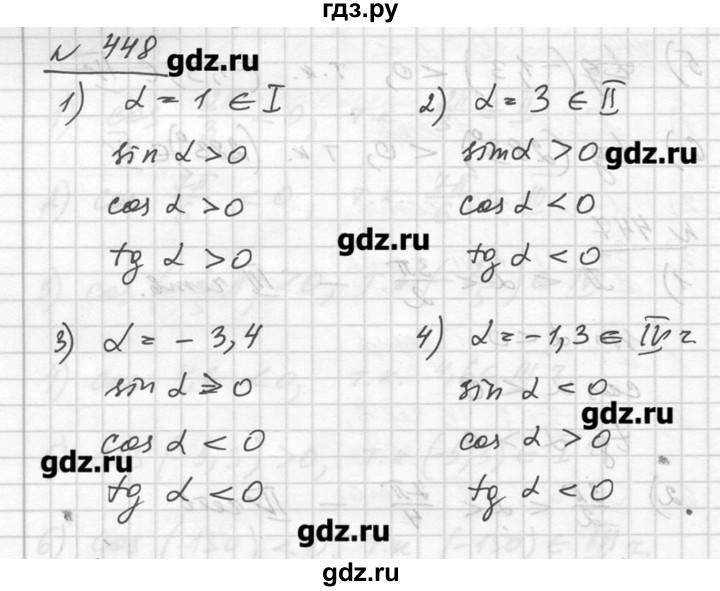 гдз.ру
№ 448
gdz.ru
1) α = 1 ∈ I
sin α > 0
cos α > 0
tg α > 0
2) α = 3 ∈ II
sin α > 0
gdz.ru
cos α < 0
gdz.ru
tg α < 0
3) α = - 3,4
sin α > 0
cos α < 0
gdz.ru
tg α < 0
4) α = -1,3 ∈ IV ч.
sin α < 0
gdz.ru
cos α > 0
tg α < 0
gdz.ru
gdz.ru